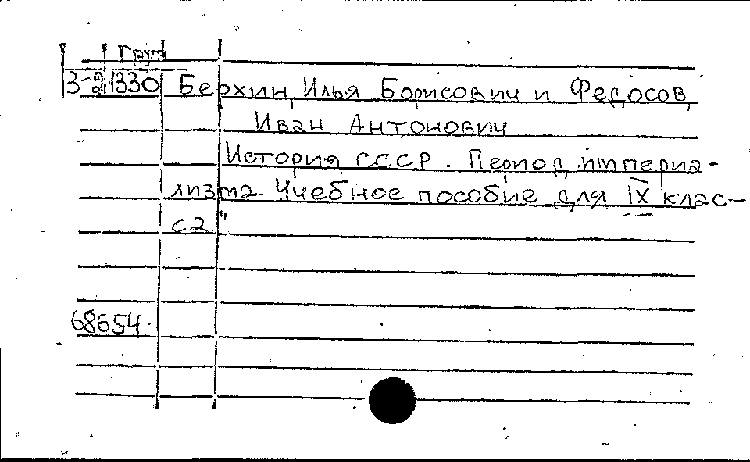 Груз
3-2 1330 Берхин, Илья Борисович и Федосов,
Иван Антонович
История СССР. Период империа-
лизма. Учебное пособие для IX клас-
са
68654.